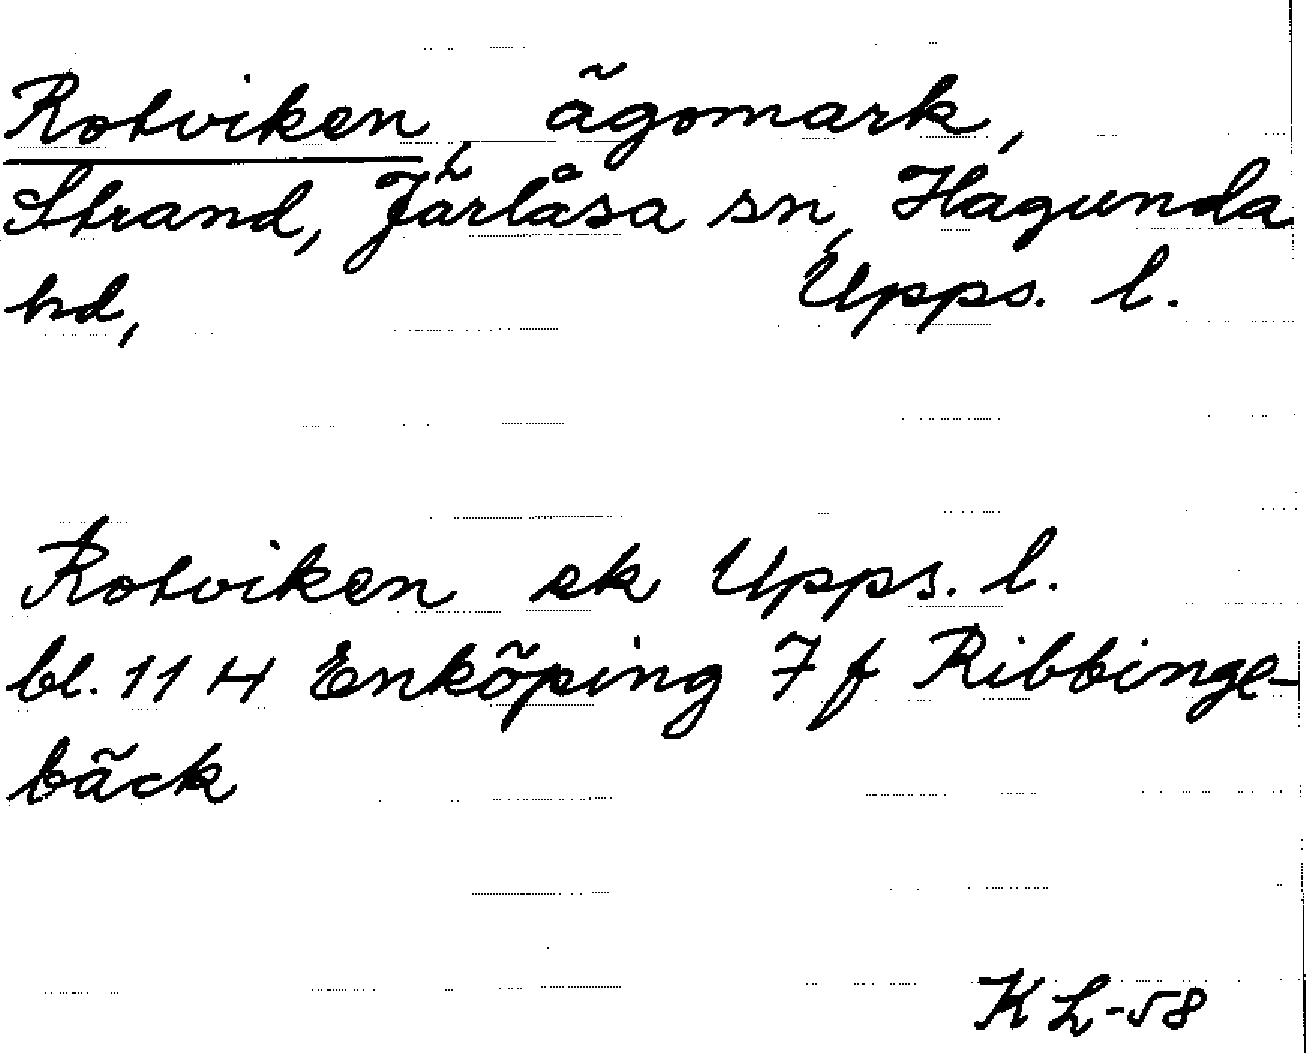 Rotviken, ägomark,
Strand, Järlåsa sn, Hagunda
hd, Upps. l.
Rotviken ek Upps. l.
bl. 11 H Enköping 7 f Ribbinge-
bäck
K L-58